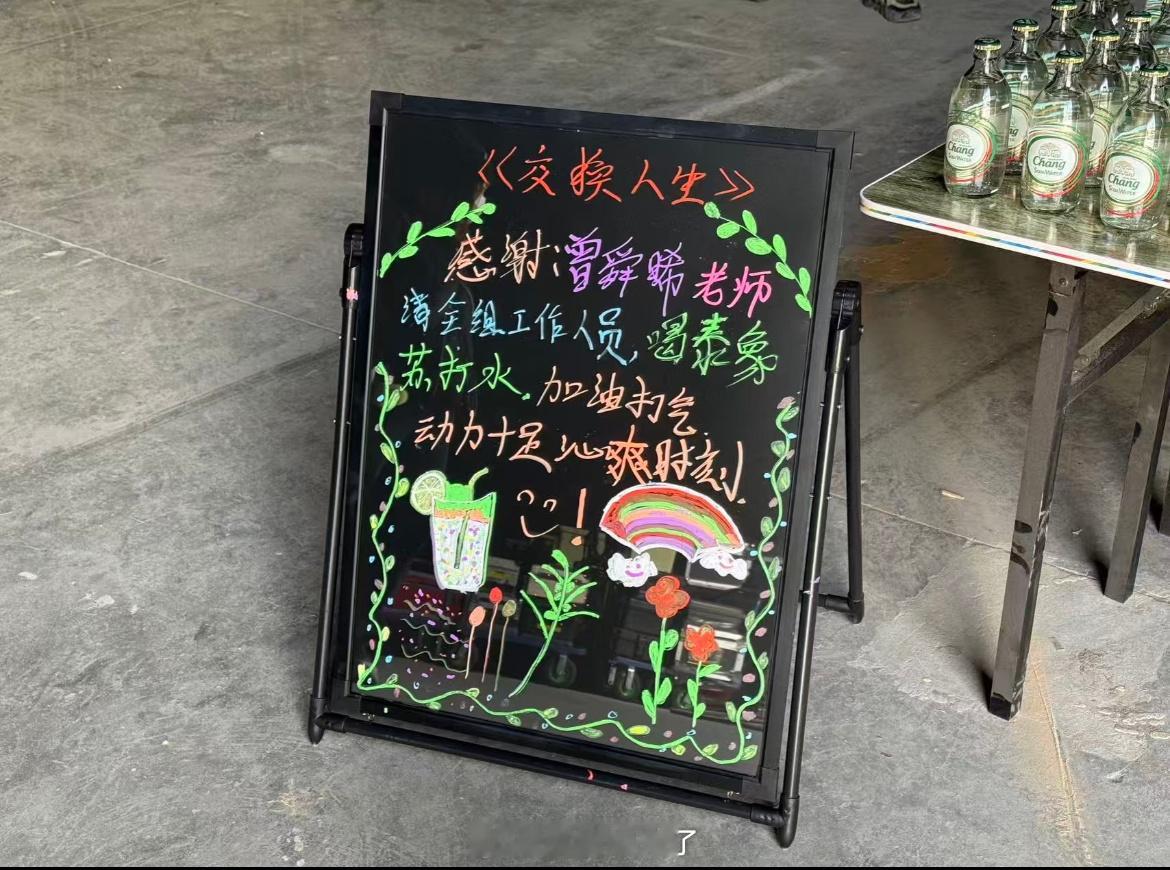 《交换人生》
感谢:曾舜晞老师
请全组工作人员,喝泰象
苏打水.加油打气
动力十足沁爽时刻
!
Chang
SODA WATER
Chang
SODA WATER
Chang
SODA WATER
了